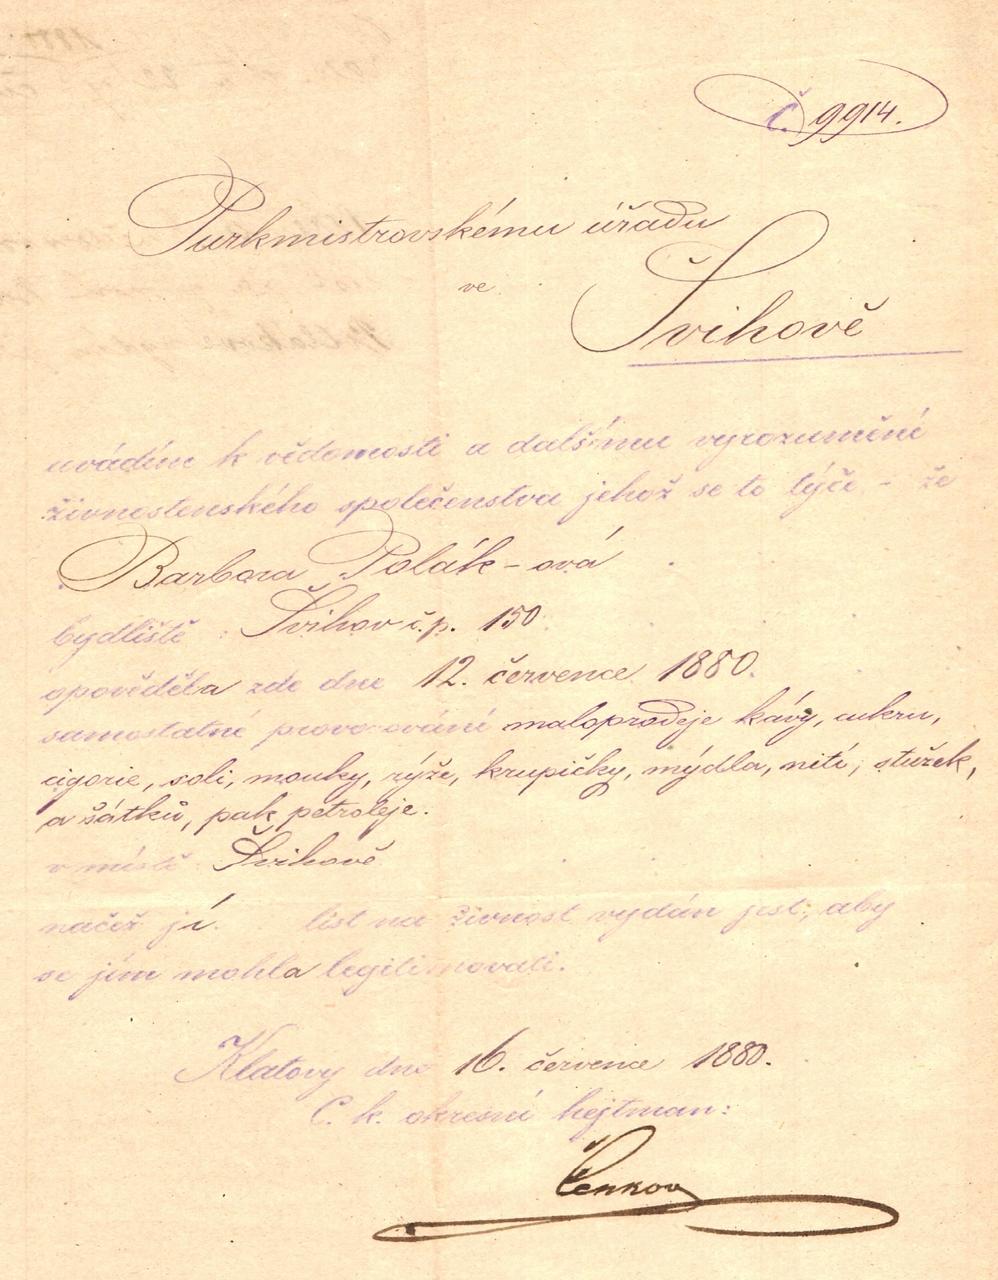 č. 9914.
Purkmistrovskému úřadu
ve
Švihově
uvádím k vědomosti a dalšímu vyrozumění
živnostenského společenstva jehož se to týče – že
Barbora Polák-ová
bydliště : Švihov č.p. 150
opověděla zde dne 12. července 1880.
samostatné provozování maloprodeje kávy, cukru,
cigorie, soli, mouky, rýže, krupičky, mýdla, nití, stužek,
a šátků, pak petroleje.
v místě Švihově
načež jí. list na živnost vydán jest, aby
se jím mohla legitimovati.
Klatovy dne 16. července 1880.
C. k. okresní hejtman: